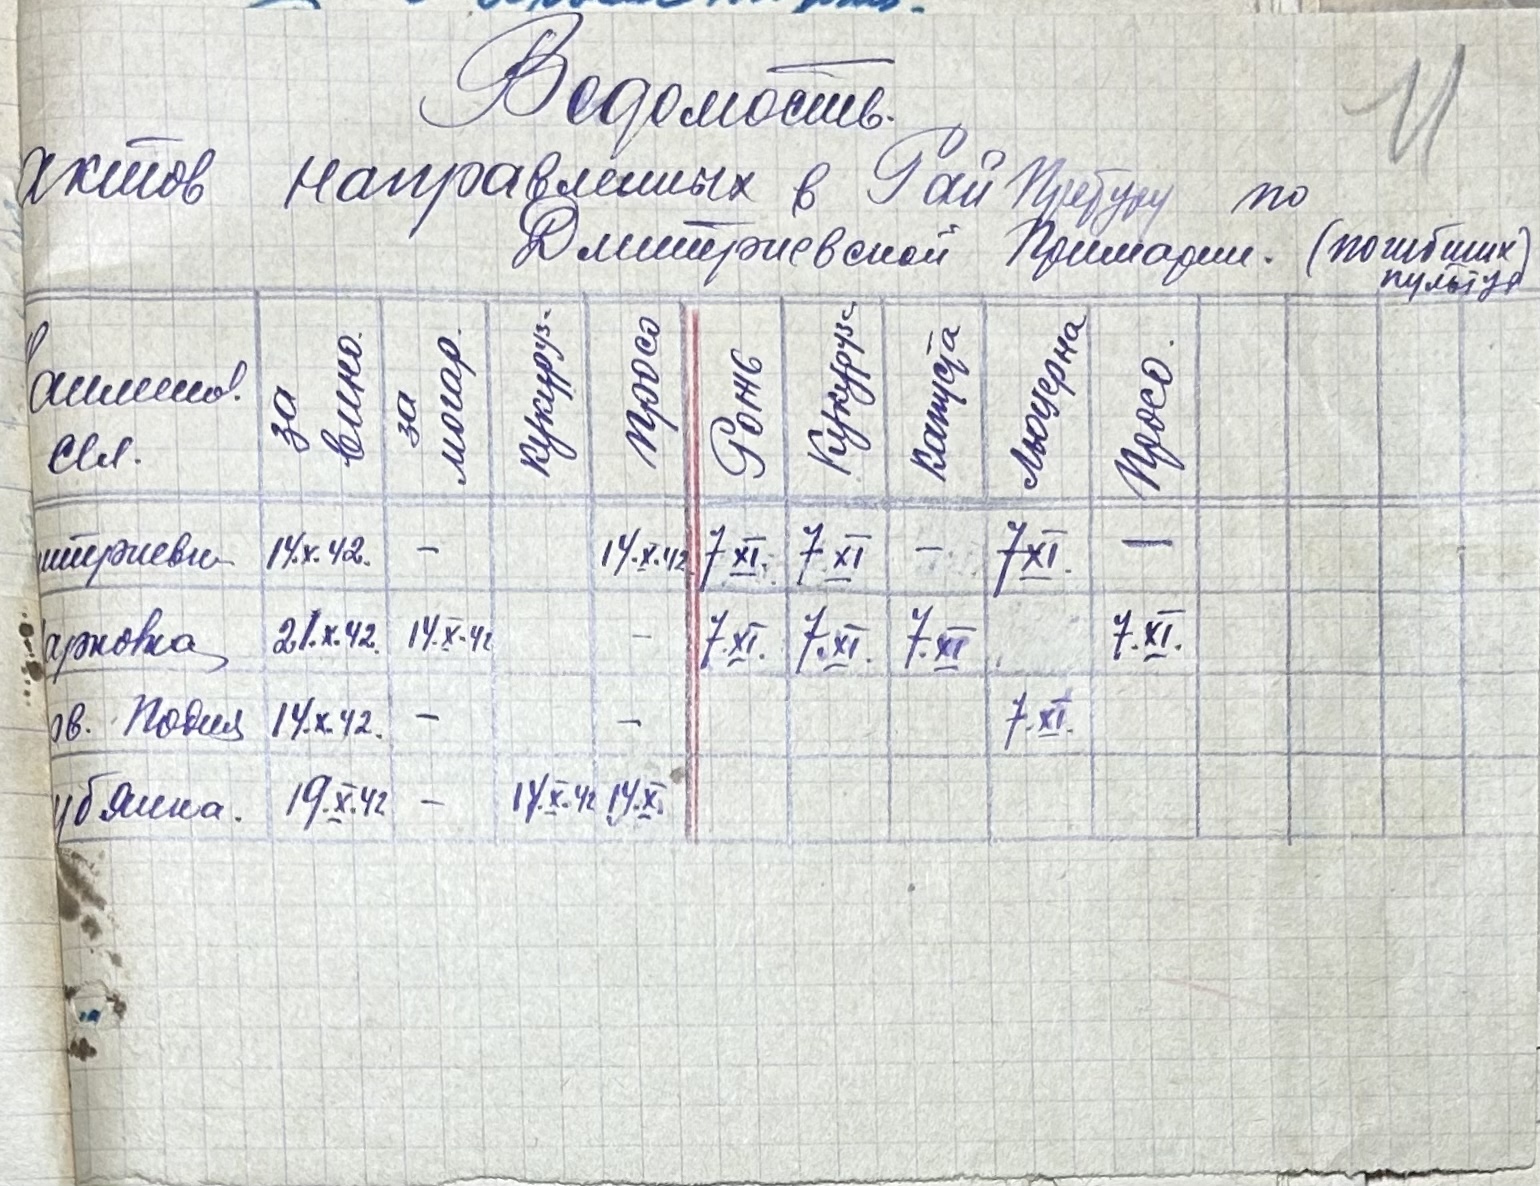 Ведомость.
Актов направленных в Рай Претуру по
Дмитриевской Примарии. (погибших)
культур
Наименов. сел. за вино. за могар. Кукуруз. Просо Рожь Кукуруз. Капуста Люцерна Просо.
митриевк 14.X.42. – 14.X.42 7 XI. 7 XI – 7 XI. –
арковка 21.X.42. 14.X.42 – 7.XI. 7.XI. 7.XI 7.XI.
ов. 14.X.42. – – 7.XI.
убянка. 19.X.42 – 14.X.42 14.X.
11